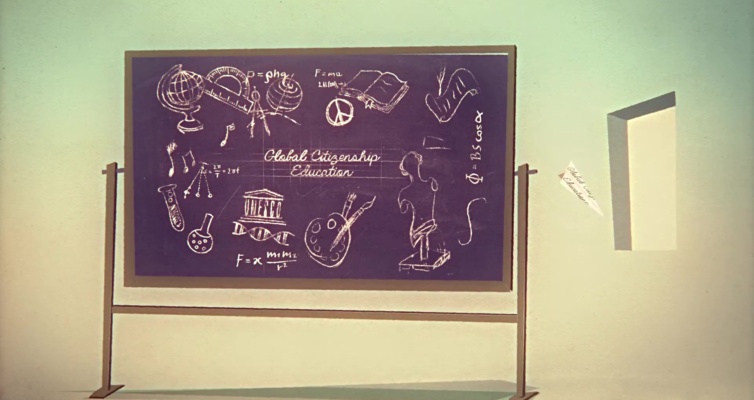 p=ρhg
F=ma
Global Citizenship
Education
Φ=BS cosα
UNESCO
F = x m₁m₂/r²